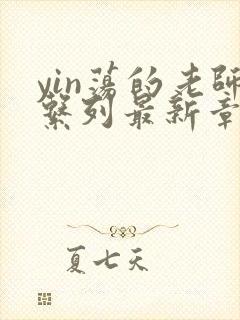 yin荡的老師
繫列最新章
夏七天